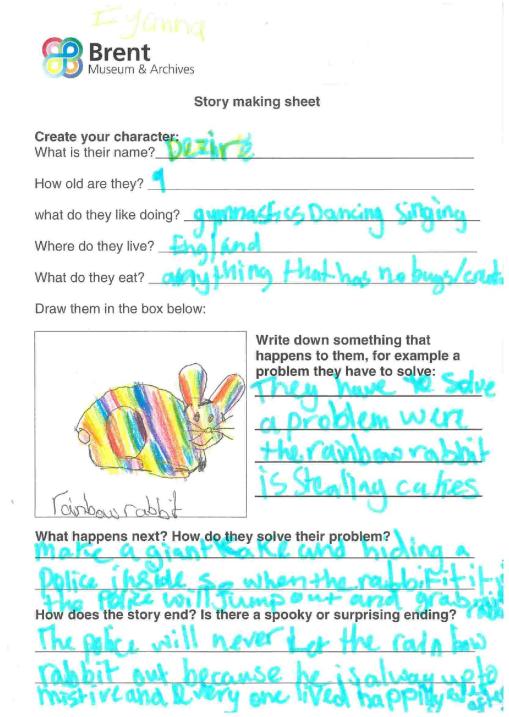 Iyanna
Brent
Museum & Archives
Story making sheet
Create your character:
What is their name? Dezire
How old are they? 9
what do they like doing? gymnastics Dancing Singing
Where do they live? England
What do they eat? anything that has no bugs/
Draw them in the box below:
rainbow rabbit
Write down something that
happens to them, for example a
problem they have to solve:
They have to solve
a problem were
the rainbow rabbit
is Stealing cakes
What happens next? How do they solve their problem?
make a giant cake and hiding a
Police inside so when the rabbit it
the Police will Jump out and grab
How does the story end? Is there a spooky or surprising ending?
The police will never Let the rainbow
rabbit out because he is alway up to
mistive and Every one lived happily